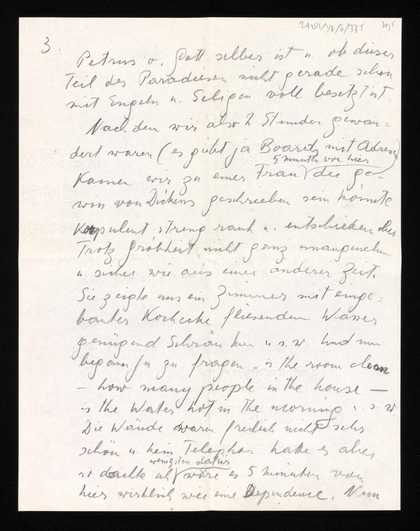 3
Petrus o. Gott selber ist u. ob dieser
Teil des Paradieses nicht gerade schon
mit Engeln u. Seligen voll besetzt ist
Nachdem wir also 2 Stunden gewan-
dert waren (es gibt ja Boards mit Adressen
5 minuten von hier
kamen wir zu einer Frau die ge-
von Dickens geschrieben sein könnte
korpulent streng rauh u. entschieden
Trotz Grobheit nicht ganz unangenehm
u. sicher wie aus einer anderen Zeit.
Sie zeigte uns ein Zimmer mit einge-
bauter Kochecke fliessendem Wasser
genügend Schränken u.s.w. Und nun
begann ich zu fragen, is the room clean
– how many people in the house –
is the Water hot in the morning u.s.w
Die Wände waren freilich nicht sehr
schön u. kein Telephon hatte es aber
wenigstens dafür
so dachte ich wäre es 5 minuten von
hier wirklich wie eine Dependence. Nun